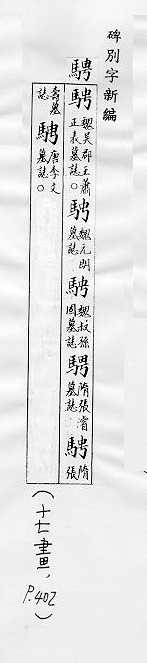 碑別字新編
騁
騁魏吳郡王蕭正表墓誌。騁魏元朗墓誌騁魏叔孫固墓誌騁隋張濬墓誌騁隋張
壽墓誌騁唐李文墓誌。
(十七畫, P.402)